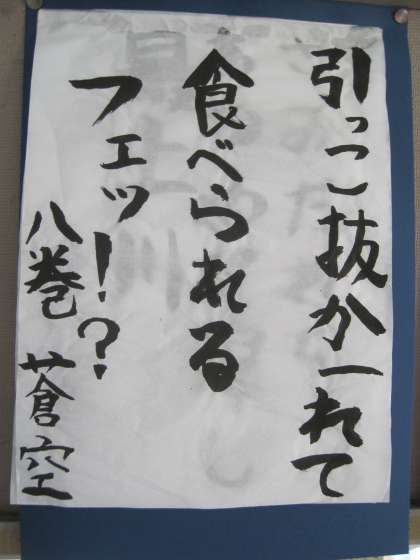 引っこ抜かれて
食べられる
フェッ!?
八巻 蒼空